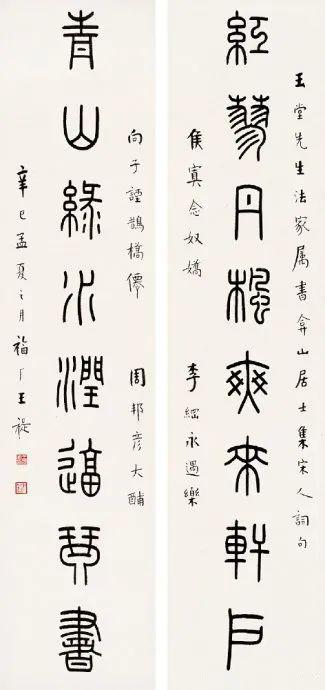 玉堂先生法家属書弇山居士集宋人詞句
紅蓼丹楓爽來軒戶
侯寘念奴嬌 李綱永遇樂
向子諲鵲橋僊 周邦彥大酺
青山綠水潤逼琴書
辛巳孟夏之月福厂王禔